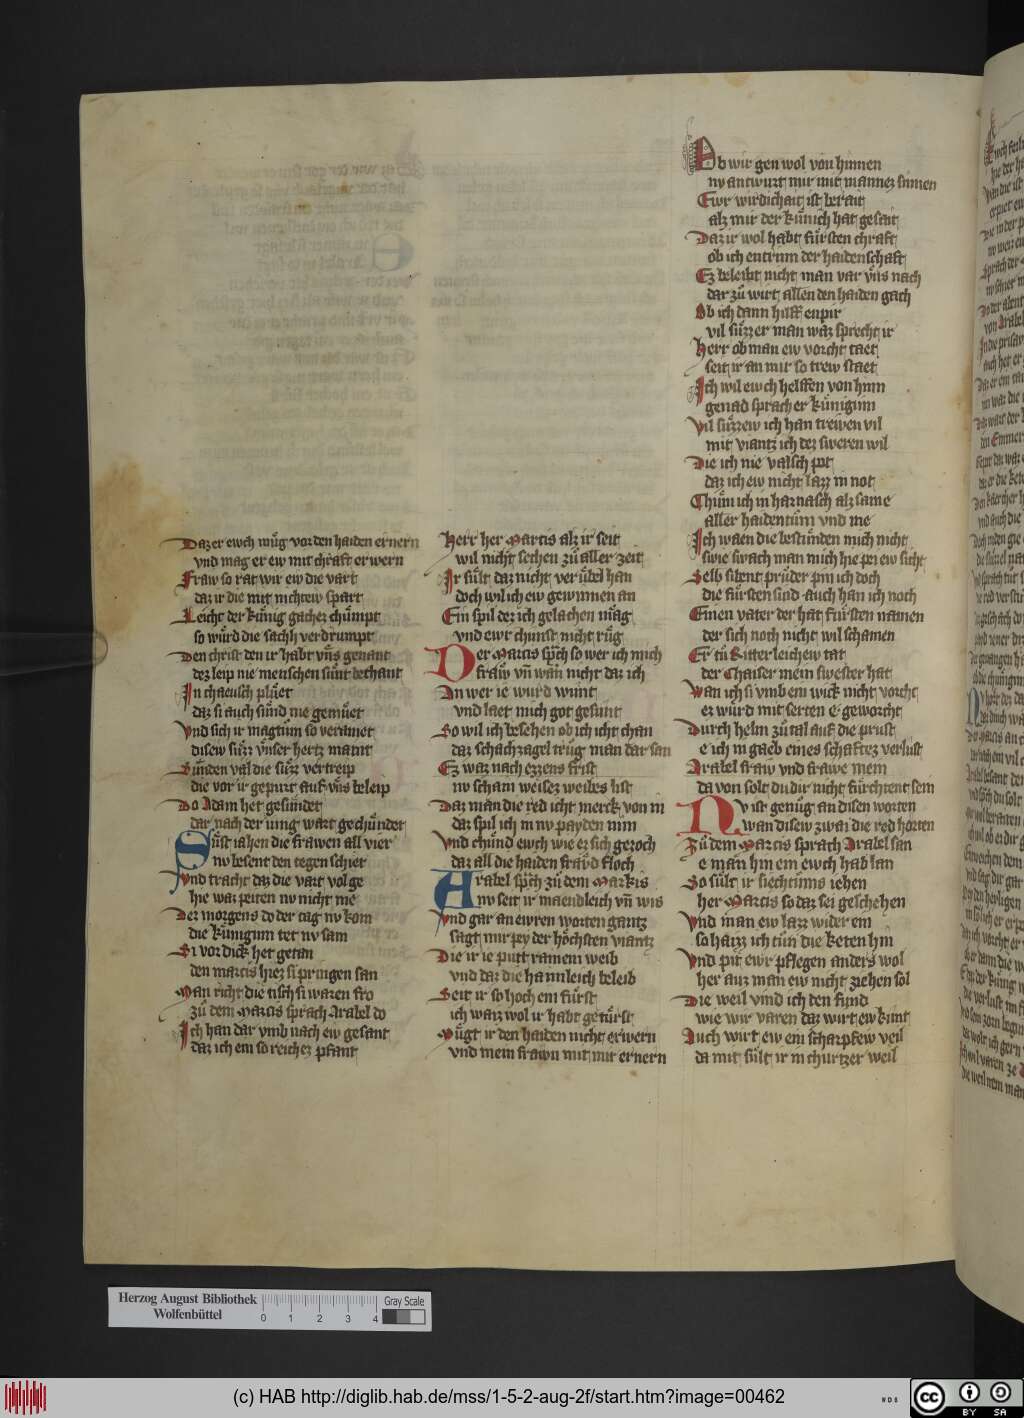 Daz er ewch muͤg vor den haiden ernern
vnd mag er ew mit chraft erwern
Fraw so rat wir ew die vart
daz ir die mit nichtew spart
Leicht der kuͤnig gachez chuͤmpt
so wuͤrd die sachh verdrumpt
Den christ den ir habt vns genant
dez leip nie menschen suͤnt bechant
In chaeusch pluͤet
daz si auch suͤnd nie gemuͤet
Vnd sich ir magtum so veramet
disew suͤzz vnser hertz mamt
Suͤnden val die suͤzz vertreip
die vor ir gepurt auf vns beleip
Do Adam het gesundet
dar nach der iung wart gechuͤndet
Suͤst iahen die frawen all vier
nv besent den tegen schier
Vnd tracht daz die vart volge
hie waz peiten nv nicht me
Dez morgens do der tag nv kom
die kuniginn tet nv sam
Si vor dick het getan
den marcis hiez si pringen san
Man richt die tisch si waren fro
zuͤ dem Marcis sprach Arabel do
Ich han dar vmb nach ew gesant
daz ich ein so reichez pfant
Herr her Marcis alz ir seit
wil nicht setzen zuͤ aller zeit
Ir suͤlt daz nicht veruͤbel han
doch wil ich ew gewinnen an
Ein spil dez ich gelachen mag
vnd ewr chunst nicht ruͤg
Der Marcis spch so wer ich mich
fraw vn wan nicht daz ich
An wer ie wurd wunt
vnd laet mich got gesunt
So wil ich besehen ob ich icht chan
daz schachzagel truͤg man dar san
Ez waz nach ezzens frist
nv scham weisez weibes list
Daz man die red icht merck von in
daz spil ich in nv payden nim
Vnd chuͤnd ewch wie ez sich gezoch
daz all die haiden fraͤvd floch
Arabel spch zuͤ dem Markis
nv seit ir maendleich vn wis
Vnd gar an ewren worten gantz
sagt mir pey der hoͤchsten viantz
Die ir ie putt ramem weib
vnd daz die hannleich beleib
Seit ir so hoch ein fuͤrst
ich waiz wol ir habt getuͤrst
Muͤgt ir den haiden nicht erwern
vnd mein frawn mit mir ernern
Ob wir gen wol von hinnen
nv antwurt mir mit mannez sinnen
Ewr wirdichait ist berait
alz mir der kuͤnich hat gesait
Daz ir wol habt fuͤrsten chraft
ob ich entrinn der haidenschaft
Ez beleibt nicht man var vns nach
dar zuͤ wirt allen den haiden gach
Ob ich dann hilff enpir
vil suͤzzer man waz sprecht ir
Herr ob man ew vorcht taet
seit ir an mir so trew staet
Ich wil ewch helffen von hinn
genad sprach er kuͤniginn
Vil suͤzzew ich han trewen vil
mit viantz ich dez sweren wil
Die ich nie valsch pot
daz ich ew nicht lazz in not
Chuͤm ich in harnasch alz same
aller haidentum vnd me
Ich waen die bestuͤnden mich nicht
swie swach man mich hie pei ew sicht
Selb sibent pruͤder pin ich doch
die fuͤrsten sind auch han ich noch
Einen vater der hat fuͤrsten namen
der sich noch nicht wil schamen
Er tuͤ Ritter leichew tat
der Chaiser mein swester hat
Wan ich si vmb ein wick nicht vorcht
ez wuͤrd mit serten e geworcht
Durch helm zuͤ tal auf die prust
e ich in gaeb eines schaftez verlust
Arabel fraw vnd frawe mein
da von solt du dir nicht fuͤrchtent sein
Nv ist genuͤg an disen worten
wan disew zwai die red horten
Zuͤ dem Marcis sprach Arabel san
e man hin ein ewch hab lan
So suͤlt ir siechtuͤms iehen
her Marcis so daz sei geschehen
Vnd man ew lazz wider ein
so haizz ich tuͤn die keten hin
Vnd pit ewr pflegen anders wol
her auz man ew nicht ziehen sol
Die weil vind ich den fund
wie wir varen daz wirt ew kunt
Auch wirt ew ein scharpfew veil
da mit suͤlt ir in churtzer weil
Herzog August Bibliothek
Wolfenbüttel
0 1 2 3 4
Gray Scale
(c) HAB http://diglib.hab.de/mss/1-5-2-aug-2f/start.htm?image=00462
WDB
cc BY SA